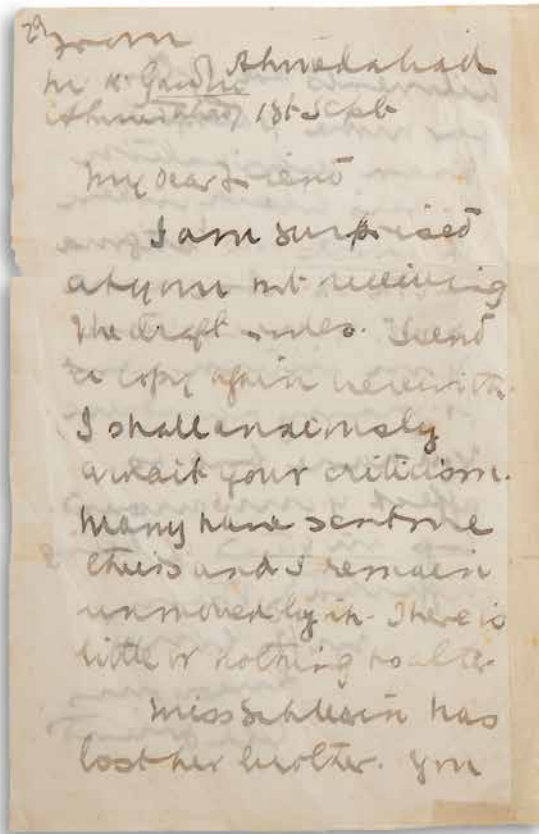 29
From
M. K. Gandhi Ahmedabad
Ahmedabad 18t Sept
My dear Friend
I am surprised
at your not receiving
the draft rules. I send
a copy again herewith.
I shall anxiously
await your criticism.
Many have sent me
theirs and I remain
unmoved by it. There is
little or nothing to alter.
Miss Schlesin has
lost her brother. You